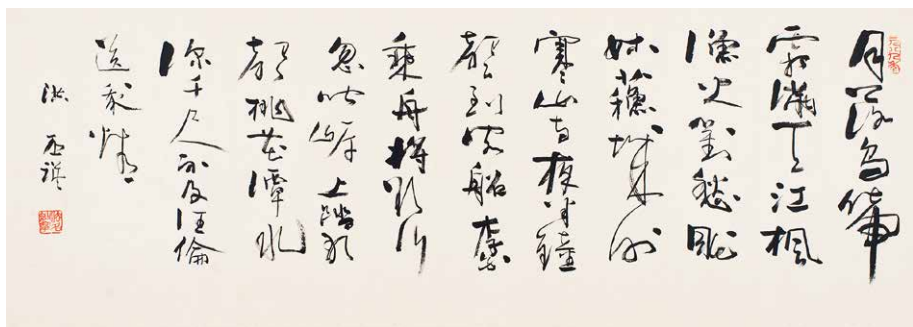 月落烏啼
霜滿天江楓
漁火對愁眠
姑蘇城外
寒山寺夜半鐘
聲到客船李白
乘舟將欲行
忽聞岸上踏歌
聲桃花潭水
深千尺不及汪倫
送我情
洪丕謨